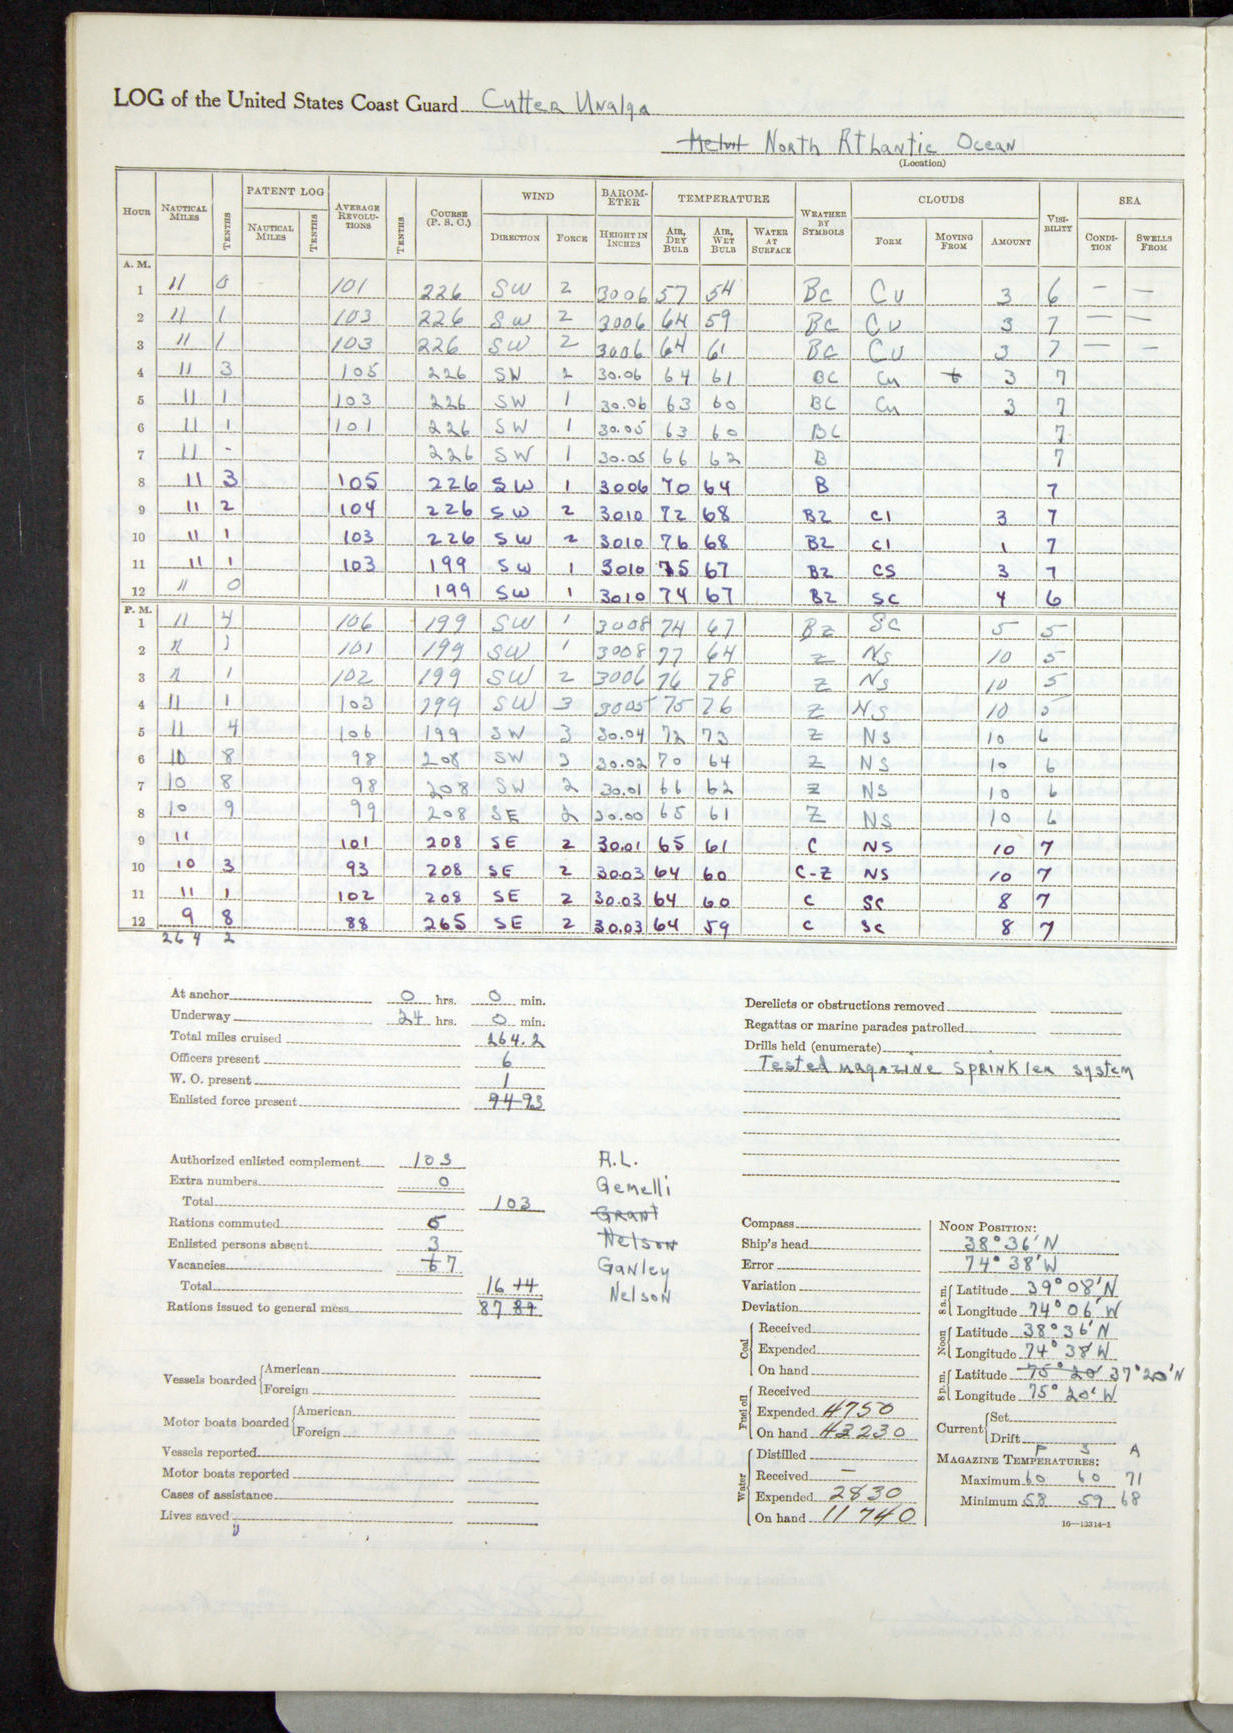 LOG of the United States Coast Guard Cutter Unalga
North Atlantic Ocean
(Location)
HOUR NAUTICAL MILES TENTHS PATENT LOG NAUTICAL MILES TENTHS AVERAGE REVOLUTIONS TENTHS COURSE (P. S. C.) WIND DIRECTION FORCE BAROMETER HEIGHT IN INCHES TEMPERATURE AIR, DRY BULB AIR, WET BULB WATER AT SURFACE WEATHER BY SYMBOLS CLOUDS FORM MOVING FROM AMOUNT VISIBILITY SEA CONDITION SWELLS FROM
A. M.
1 11 0 101 226 SW 2 3006 57 54 BC CU 3 6 — —
2 11 1 103 226 SW 2 3006 64 59 BC CU 3 7 — —
3 11 1 103 226 SW 2 3006 64 61 BC CU 3 7 — —
4 11 3 105 226 SW 2 30.06 64 61 BC Cu 3 7
5 11 1 103 226 SW 1 30.06 63 60 BC Cu 3 7
6 11 1 101 226 SW 1 30.05 63 60 BC 7
7 11 - 226 SW 1 30.05 66 62 B 7
8 11 3 105 226 SW 1 3006 70 64 B 7
9 11 2 104 226 SW 2 3010 72 68 BZ CI 3 7
10 11 1 103 226 SW 2 3010 76 68 BZ CI 1 7
11 11 1 103 199 SW 1 3010 75 67 BZ CS 3 7
12 11 0 199 SW 1 3010 74 67 BZ SC 4 6
P. M.
1 11 4 106 199 SW 1 3008 74 67 BZ SC 5 5
2 11 1 101 199 SW 1 3008 77 64 Z NS 10 5
3 11 1 102 199 SW 2 3006 76 78 Z NS 10 5
4 11 1 103 199 SW 3 3005 75 76 Z NS 10 5
5 11 4 106 199 SW 3 30.04 72 73 Z NS 10 6
6 10 8 98 208 SW 3 30.02 70 64 Z NS 10 6
7 10 8 98 208 SW 2 30.01 66 62 Z NS 10 6
8 10 9 99 208 SE 2 30.00 65 61 Z NS 10 6
9 11 101 208 SE 2 30.01 65 61 C NS 10 7
10 10 3 93 208 SE 2 30.03 64 60 C-Z NS 10 7
11 11 1 102 208 SE 2 30.03 64 60 C SC 8 7
12 9 8 88 265 SE 2 30.03 64 59 C SC 8 7
264 2
At anchor 0 hrs. 0 min.
Underway 24 hrs. 0 min.
Total miles cruised 264.2
Officers present 6
W. O. present 1
Enlisted force present 94 93
Authorized enlisted complement 103
Extra numbers 0
Total 103
Rations commuted
Enlisted persons absent 3
Vacancies 6 7
Total 16 14
Rations issued to general mess 87 89
A.L.
Gemelli
Grant
Nelson
Ganley
Nelson
Vessels boarded American
Foreign
Motor boats boarded American
Foreign
Vessels reported
Motor boats reported
Cases of assistance
Lives saved
Derelicts or obstructions removed
Regattas or marine parades patrolled
Drills held (enumerate)
Tested magazine sprinkler system
Compass
Ship's head
Error
Variation
Deviation
Coal Received
Expended
On hand
Fuel oil Received
Expended 4750
On hand 43230
Water Distilled
Received —
Expended 2830
On hand 11740
NOON POSITION:
38° 36' N
74° 38' W
8 a. m. Latitude 39° 08' N
Longitude 74° 06' W
Noon Latitude 38° 36' N
Longitude 74° 38' W
8 p. m. Latitude 75° 20' 37° 20' N
Longitude 75° 20' W
Current Set
Drift
P S A
MAGAZINE TEMPERATURES:
Maximum 60 60 71
Minimum 58 59 68
16—13314-1